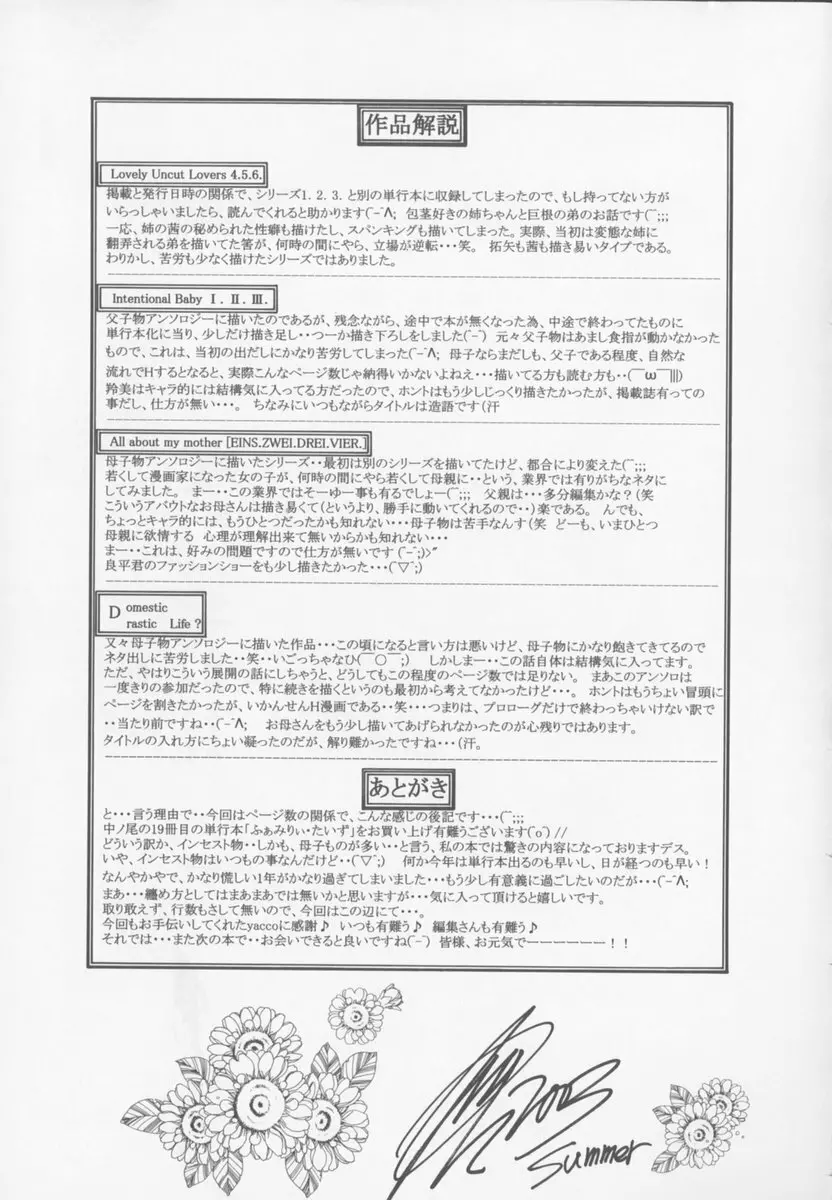 作品解説
Lovely Uncut Lovers 4.5.6.
掲載と発行日時の関係で、シリーズ1．2．3．と別の単行本に収録してしまったので、もし持ってない方が
いらっしゃいましたら、読んでくれると助かります(ˉ-ˉΛ; 包茎好きの姉ちゃんと巨根の弟のお話です(ˉˉ;;;
一応、姉の茜の秘められた性癖も描けたし、スパンキングも描いてしまった。実際、当初は変態な姉に
翻弄される弟を描いてた筈が、何時の間にやら、立場が逆転・・・笑。 拓矢も茜も描き易いタイプである。
わりかし、苦労も少なく描けたシリーズではありました。
Intentional Baby Ⅰ．Ⅱ．Ⅲ．
父子物アンソロジーに描いたのであるが、残念ながら、途中で本が無くなった為、中途で終わってたものに
単行本化に当り、少しだけ描き足し・・つーか描き下ろしをしました(ˉ-ˉ) 元々父子物はあまし食指が動かなかった
もので、これは、当初の出だしにかなり苦労してしまった(ˉ-ˉΛ; 母子ならまだしも、父子である程度、自然な
流れでHするとなると、実際こんなページ数じゃ納得いかないよねえ・・・描いてる方も読む方も・・(￣ω￣|||)
羚美はキャラ的には結構気に入ってる方だったので、ホントはもう少しじっくり描きたかったが、掲載誌有っての
事だし、仕方が無い・・・。 ちなみにいつもながらタイトルは造語です（汗
All about my mother [EINS.ZWEI.DREI.VIER.]
母子物アンソロジーに描いたシリーズ・・最初は別のシリーズを描いてたけど、都合により変えた(ˉˉ;;;
若くして漫画家になった女の子が、何時の間にやら若くして母親に・・という、業界では有りがちなネタに
してみました。 まー・・この業界ではそーゆー事も有るでしょー(ˉˉ;;; 父親は・・・多分編集かな？(笑
こういうアバウトなお母さんは描き易くて(というより、勝手に動いてくれるので・・)楽である。 んでも、
ちょっとキャラ的には、もうひとつだったかも知れない・・・母子物は苦手なんす(笑 どーも、いまひとつ
母親に欲情する 心理が理解出来て無いからかも知れない・・・
まー・・これは、好みの問題ですので仕方が無いです (ˉ-ˉ;)>"
良平君のファッションショーをも少し描きたかった・・・(ˉ▽ˉ;)
Domestic
Drastic Life ?
又々母子物アンソロジーに描いた作品・・・この頃になると言い方は悪いけど、母子物にかなり飽きてきてるので
ネタ出しに苦労しました・・笑・・いごっちゃなひ(￣○￣;) しかしまー・・この話自体は結構気に入ってます。
ただ、やはりこういう展開の話にしちゃうと、どうしてもこの程度のページ数では足りない。 まあこのアンソロは
一度きりの参加だったので、特に続きを描くというのも最初から考えてなかったけど・・・。 ホントはもうちょい冒頭に
ページを割きたかったが、いかんせんH漫画である・・笑・・・つまりは、プロローグだけで終わっちゃいけない訳で
・・当たり前ですね・・(ˉ-ˉΛ; お母さんをもう少し描いてあげられなかったのが心残りではあります。
タイトルの入れ方にちょい凝ったのだが、解り難かったですね・・・（汗。
あとがき
と・・・言う理由で・・今回はページ数の関係で、こんな感じの後記です・・・(ˉˉ;;;
中ノ尾の19冊目の単行本「ふぁみりぃ・たいず」をお買い上げ有難うございます(ˉoˉ)//
どういう訳か、インセスト物・・しかも、母子ものが多い・・と言う、私の本では驚きの内容になっておりますデス。
いや、インセスト物はいつもの事なんだけど・・(ˉ▽ˉ;) 何か今年は単行本出るのも早いし、日が経つのも早い！
なんやかやで、かなり慌しい1年がかなり過ぎてしまいました・・・もう少し有意義に過ごしたいのだが・・・(ˉ-ˉΛ;
まあ・・・纏め方としてはまあまあでは無いかと思いますが・・・気に入って頂けると嬉しいです。
取り敢えず、行数もさして無いので、今回はこの辺にて・・・。
今回もお手伝いしてくれたyaccoに感謝♪ いつも有難う♪ 編集さんも有難う♪
それでは・・・また次の本で・・お会いできると良いですね(ˉ-ˉ) 皆様、お元気でーーーーーー！！
2003
Summer